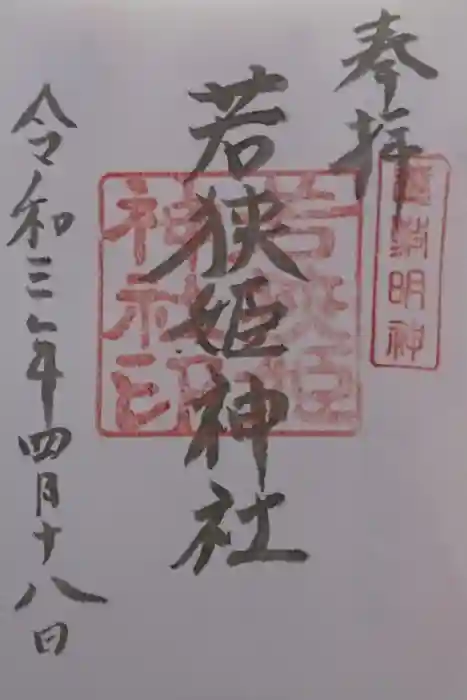 奉拝
若狭姫神社
令和三年四月十八日
若狭姫神社印
明神